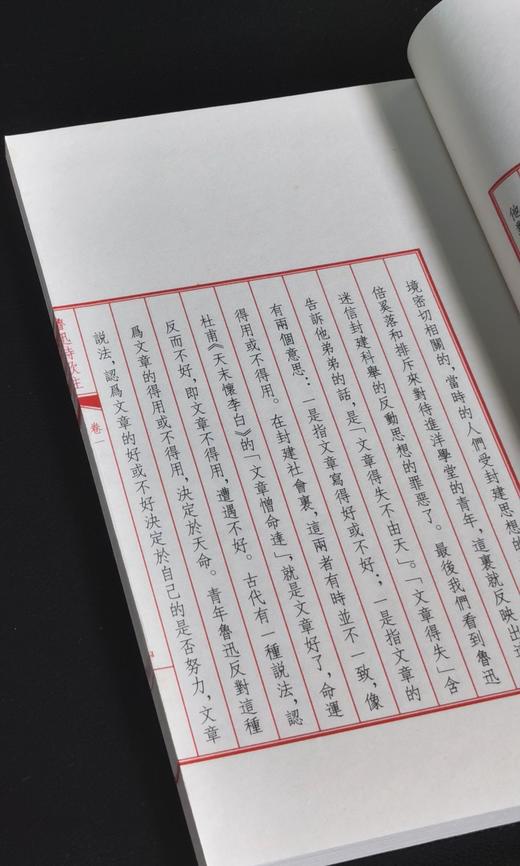 境密切相關的，當時的人們受封建思想的
倍奚落和排斥來對待進洋學堂的青年，這裏就反映出
迷信封建科舉的反動思想的罪惡了。最後我們看到魯迅
告訴他弟弟的話，是「文章得失不由天」。「文章得失」含
有兩個意思：一是指文章寫得好或不好；一是指文章的
得用或不得用。在封建社會裏，這兩者有時並不一致，像
杜甫《天末懷李白》的「文章憎命達」，就是文章好了，命運
反而不好，即文章不得用，遭遇不好。古代有一種説法，認
爲文章的得用或不得用，決定於天命。青年魯迅反對這種
説法，認爲文章的好或不好決定於自己的是否努力，文章
魯迅詩歌注
卷一